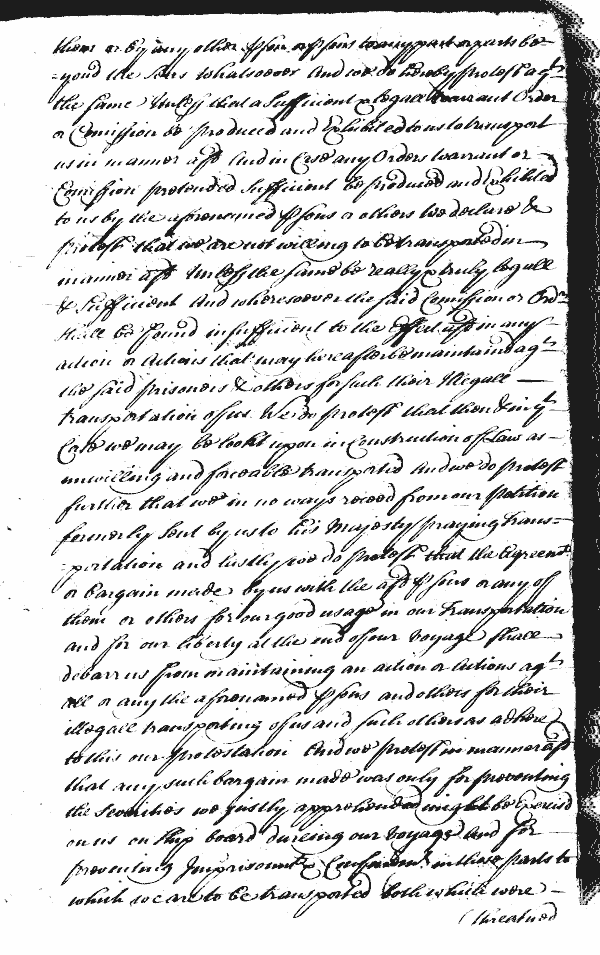 them or by any other Psons or Psons to any part or parts be-
=yond the Seas whatsoever And we do hereby protest agt
the same Unless that a Sufficient & legall warrant Order
or Comission be produced and Exhibited to us to transport
us in manner afsd And in Case any Orders warrant or
Comission pretended Sufficient be produced and Exhibited
to us by the aforenamed Psons or others We declare &
protest that we are not willing to be transported in
manner afsd Unless the same be really & truly legall
& Sufficient And wheresoever the said Comission or Ordrs
shall be found insufficient to the Effect afsd in any
action or Actions that may hereafter be maintaind agt
the said prisoners & others for such their Illegall
transportation of us We do protest that then & in yt
Case we may be lookt upon in Construction of Law as
unwilling and forceable transported And we do protest
further that we in no ways receed from our petition
formerly Sent by us to his Majesty praying trans=
-portation and lastly we do protest that the Agreemt
or bargain made by us with the afsd Psons or any of
them or others for our good usage in our transportation
and for our liberty at the end of our voyage shall
debarr us from maintaining an action or Actions agt
all or any the aforenamed Psons and others for their
illegall transporting of us and such others as adhere
to this our protestation And we protest in manner afsd
that any such bargain made was only for preventing
the Severities we justly apprehended might be Exercisd
on us on Ship board dureing our voyage And for
preventing Imprisonmt & Confinemt in those parts to
which we are to be transported both which were
threatned